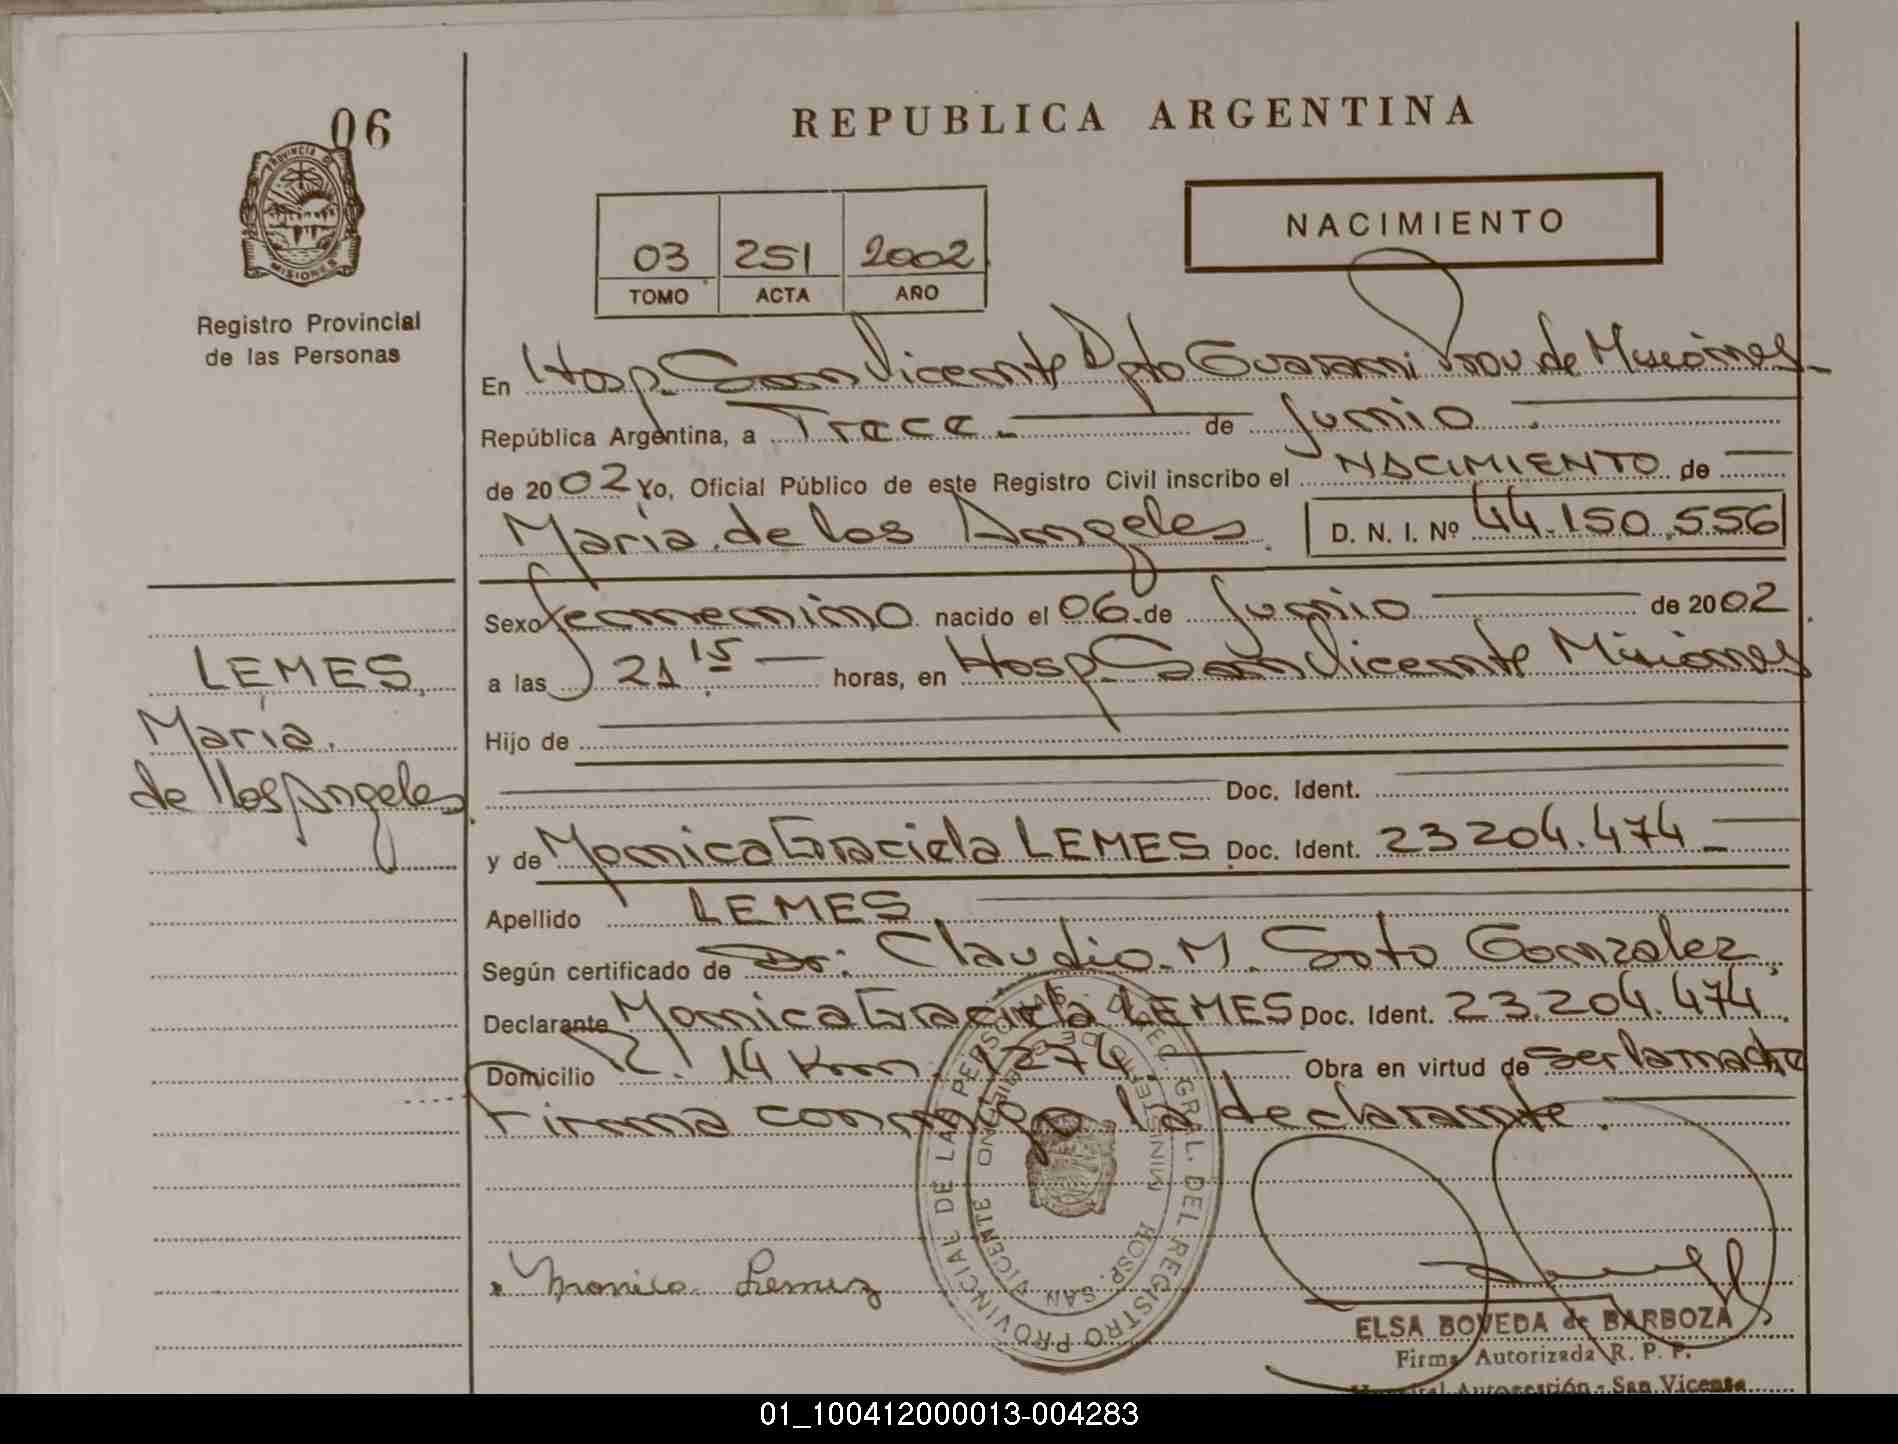 06
REPUBLICA ARGENTINA
PROVINCIA DE
MISIONES
Registro Provincial
de las Personas
03 251 2002
TOMO ACTA AÑO
NACIMIENTO
En Hosp. San Vicente Dpto Guarani Prov de Misiones
República Argentina, a Trece de Junio
de 2002 Yo, Oficial Público de este Registro Civil inscribo el NACIMIENTO de
María de los Angeles D. N. I. Nº 44.150.556
Sexo femenino nacido el 06 de Junio de 2002
a las 21 15 horas, en Hosp. San Vicente Misiones
Hijo de
Doc. Ident.
y de Monica Graciela LEMES Doc. Ident. 23 204.474
Apellido LEMES
Según certificado de Dr. Claudio M. Soto Gonzalez
Declarante Monica Graciela LEMES Doc. Ident. 23.204.474
Domicilio R. 14 Km 1274 Obra en virtud de ser la madre
Firma conmigo la declarante.
LEMES
María
de los Angeles
Monica Lemez
DIREC. GRAL. DEL REGISTRO PROVINCIAL DE LAS PERSONAS
MINISTERIO DE
HOSP. SAN VICENTE
ELSA BOVEDA de BARBOZA
Firma Autorizada R. P. P.
Hospital Autogestión - San Vicente
01_100412000013-004283